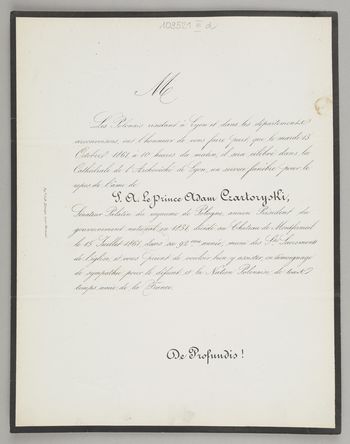 102521 III d
M
Les Polonais résidant à Lyon et dans les départements
circonvoisins, ont l'honneur de vous faire part, que le mardi 15
Octobre 1861 à 10 heures du matin, il sera célébré dans la
Cathédrale de l'Archevêché de Lyon, un service funèbre pour le
repos de l'âme de
S. A. Le Prince Adam Czartoryski,
Sénateur Palatin du royaume de Pologne, ancien Président du
gouvernement national en 1831 décédé au Château de Montfermeil
le 15 Juillet 1861 dans sa 92ème année, muni des Sts Sacrements
de l'église, et vous prient de vouloir bien y assister, en témoignage
de sympathie pour le défunt et la Nation Polonaise, de tout
temps amie de la France.
De Profundis !